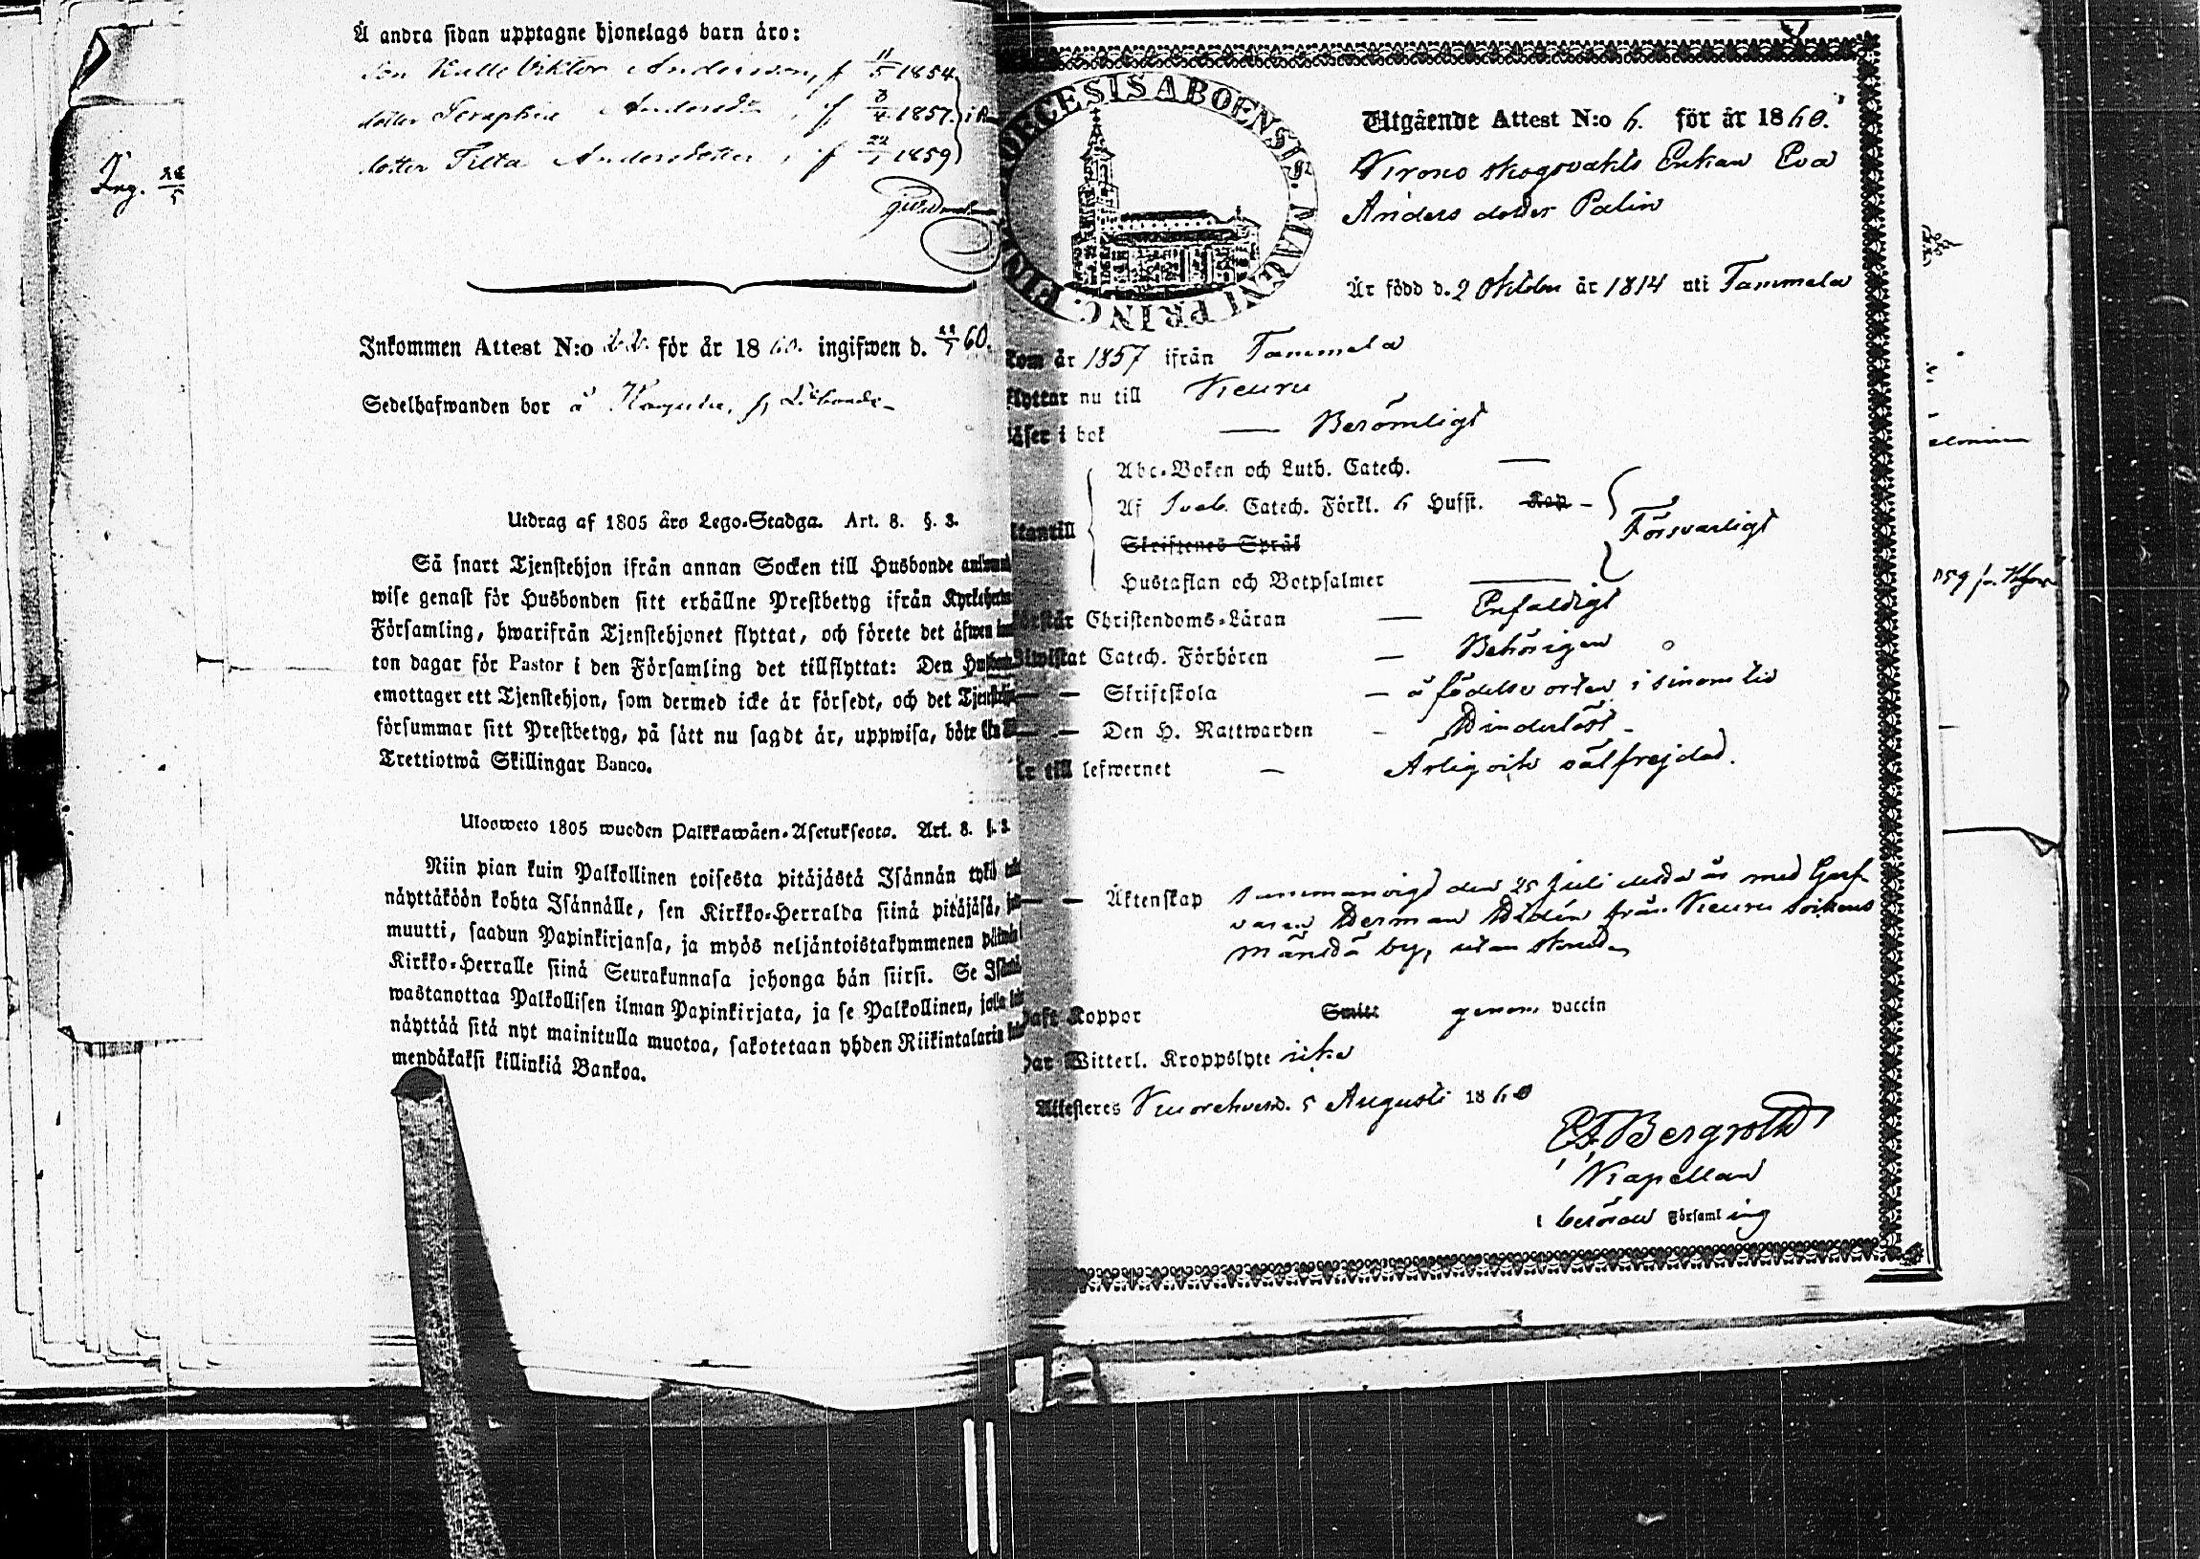 Å andra sidan upptagne hjonelags barn äro:
Son Kalle Viktor Andersson, f 11/5 1854
dotter Seraphia Andersdr, f 3/4 1857
dotter Andersdotter, f 22/1 1859
Ing.
Inkommen Attest N:o för år 1860. ingifwen d. 60.
Sedelhafwanden bor å
Utdrag af 1805 års Lego-Stadga. Art. 8. §. 3.
Så snart Tjenstehjon ifrån annan Socken till Husbonde
wise genast för Husbonden sitt erhållne Prestbetyg ifrån
Församling, hwarifrån Tjenstehjonet flyttat, och förete det äfwen
ton dagar för Pastor i den Församling det tillflyttat: Den
emottager ett Tjenstehjon, som dermed icke är försedt, och det
försummar sitt Prestbetyg, på sätt nu sagdt är, uppwisa, böte
Trettiotwå Skillingar Banco.
Ulosweto 1805 wuoden Palkkawäen-Asetuksesta. Art. 8. §. 3.
Niin pian kuin Palkollinen toisesta pitäjästä Isännän tykö
näyttäköön kohta Isännälle, sen Kirkko-Herralda siinä pitäjäsä,
muutti, saadun Papinkirjansa, ja myös neljäntoistakymmenen
Kirkko-Herralle siinä Seurakunnasa johonga hän siirsi. Se
wastanottaa Palkollisen ilman Papinkirjata, ja se Palkollinen,
näyttää sitä nyt mainitulla muotoa, sakotetaan yhden Riikintalarin
mendäkaksi killinkiä Bankoa.
DIOECESIS ABOENSIS. MAGNI PRINC. FINL.
Utgående Attest N:o 6. för år 1860.
Krono skogsvakts Enkan Eva
Anders dotter Palin
Är född d. 2 Oktober år 1814 uti Tammela
kom år 1857 ifrån Tammela
flyttar nu till Keuru
läser i bok — Berömligt
Abc-Boken och Luth. Catech. —
Af Sveb. Catech. Förkl. 6 Hufst. Kap —
Skriftenes Språk
Försvarligt
utantill
Hustaflan och Botpsalmer
förstår Christendoms-Läran — Enfaldigt
Biwistat Catech. Förhören — Behörigen
— — Skriftskola — å födelse orten i sinom tid
— — Den H. Nattwarden - Hinderlöst -
Är till lefwernet — Ärlig och välfrejdad.
— — Äktenskap sammanvigd den 25 Juli detta år med Garf-
varen Herman Hidén från Keuru sockens
Mänttä by, utan
haft Koppor Smitt genom vaccin
har Witterl. Kroppslyte icke
Attesteres Kuorehvesi. 5 Augusti 1860
Bergroth
Kapellan
i berörde Församling